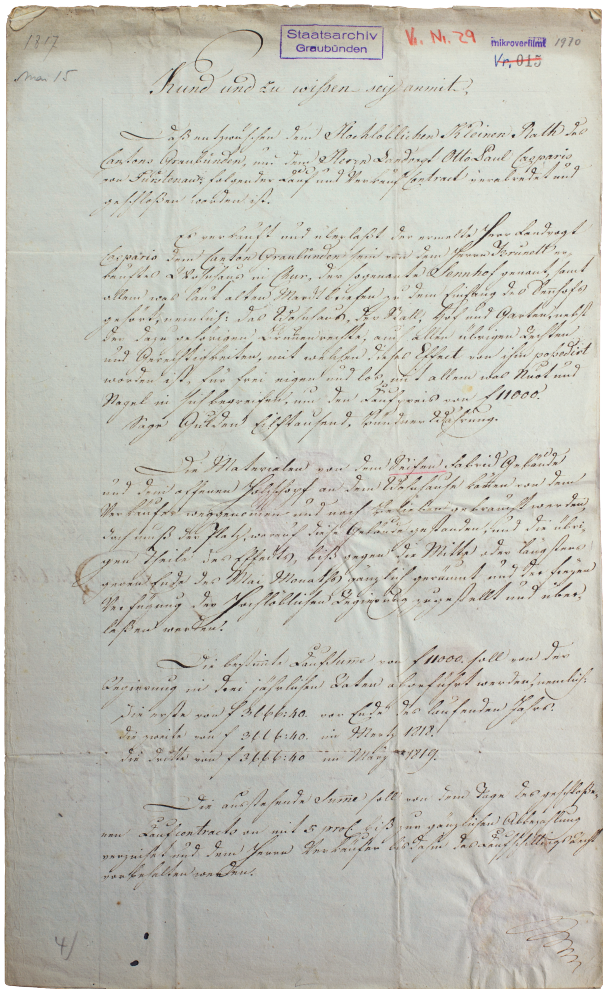 1817
Mai 15
Staatsarchiv
Graubünden
Vr. Nr. 29
mikroverfilmt 1970
Vr. 015
Kund und zu wissen seÿ anmit,
Daß entzwüschen dem Hochloblichen Kleinen Rath des
Cantons Graubünden, und dem Herrn Landvogt Otto Paul Casparis
von Fürstenau, folgender Kauf und Verkauf Contract verabredet und
geschloßen worden ist.
es verkauft und überlaßt der ermelte Herr Landvogt
Casparis dem Canton Graubünden sein von dem Herrn Brunolt er-
kauftes Wohnhaus in Cur, der sogenante Sennhof genant, samt
allem was laut alten Markbriefen zu dem Einfang des Sennhofs
gehört, nemlich: das Wohnhaus, der Stall, Hof und Garten, nebst
der dazu gehörigen Brunenrechte, auch allen übrigen Rechten
und Gerechtigkeiten, mit welchen dieses Effect von ihm poßedirt
worden ist, für frei eigen und los, mit allem was Nuet und
Nagel in sich begreifen, um den Kaufpreis von f 11000.
Sage Gulden Eilftausend Bündner Währung.
Die Materialen von dem Seifen Fabrick Gebäude
und dem offenen Holzschopf an dem Wohnhause können von dem
Verkaufer weggenomen und nach Belieben gebraucht werden,
doch muß der Platz, worauf diese Gebäude gestanden, und die übri-
gen Theile des Effects, biß gegen die Mitte oder längstens
gegen Ende des Mai Monaths gänzlich geraumt, und der freÿen
Verfügung der Hochlöblichen Regierung zugestellt und über-
laßen werden.
Die bestimte Kaufsume von f 11000. soll von der
Regierung in drei jährlichen Raten abgeführt werden, nemlich:
die erste von f 3666:40. vor Ende des laufenden Jahrs.
die zweite von f 3666:40. im Merz 1818.
die dritte von f 3666:40 im März 1819.
Die ausstehende Summe soll von dem Tage des geschloße-
nen Kaufcontracts an mit 5 proC. biß zur gänzlichen Abzahlung
verzinset und dem Herrn Verkaufer bisdahin das
vorbehalten werden.
4/